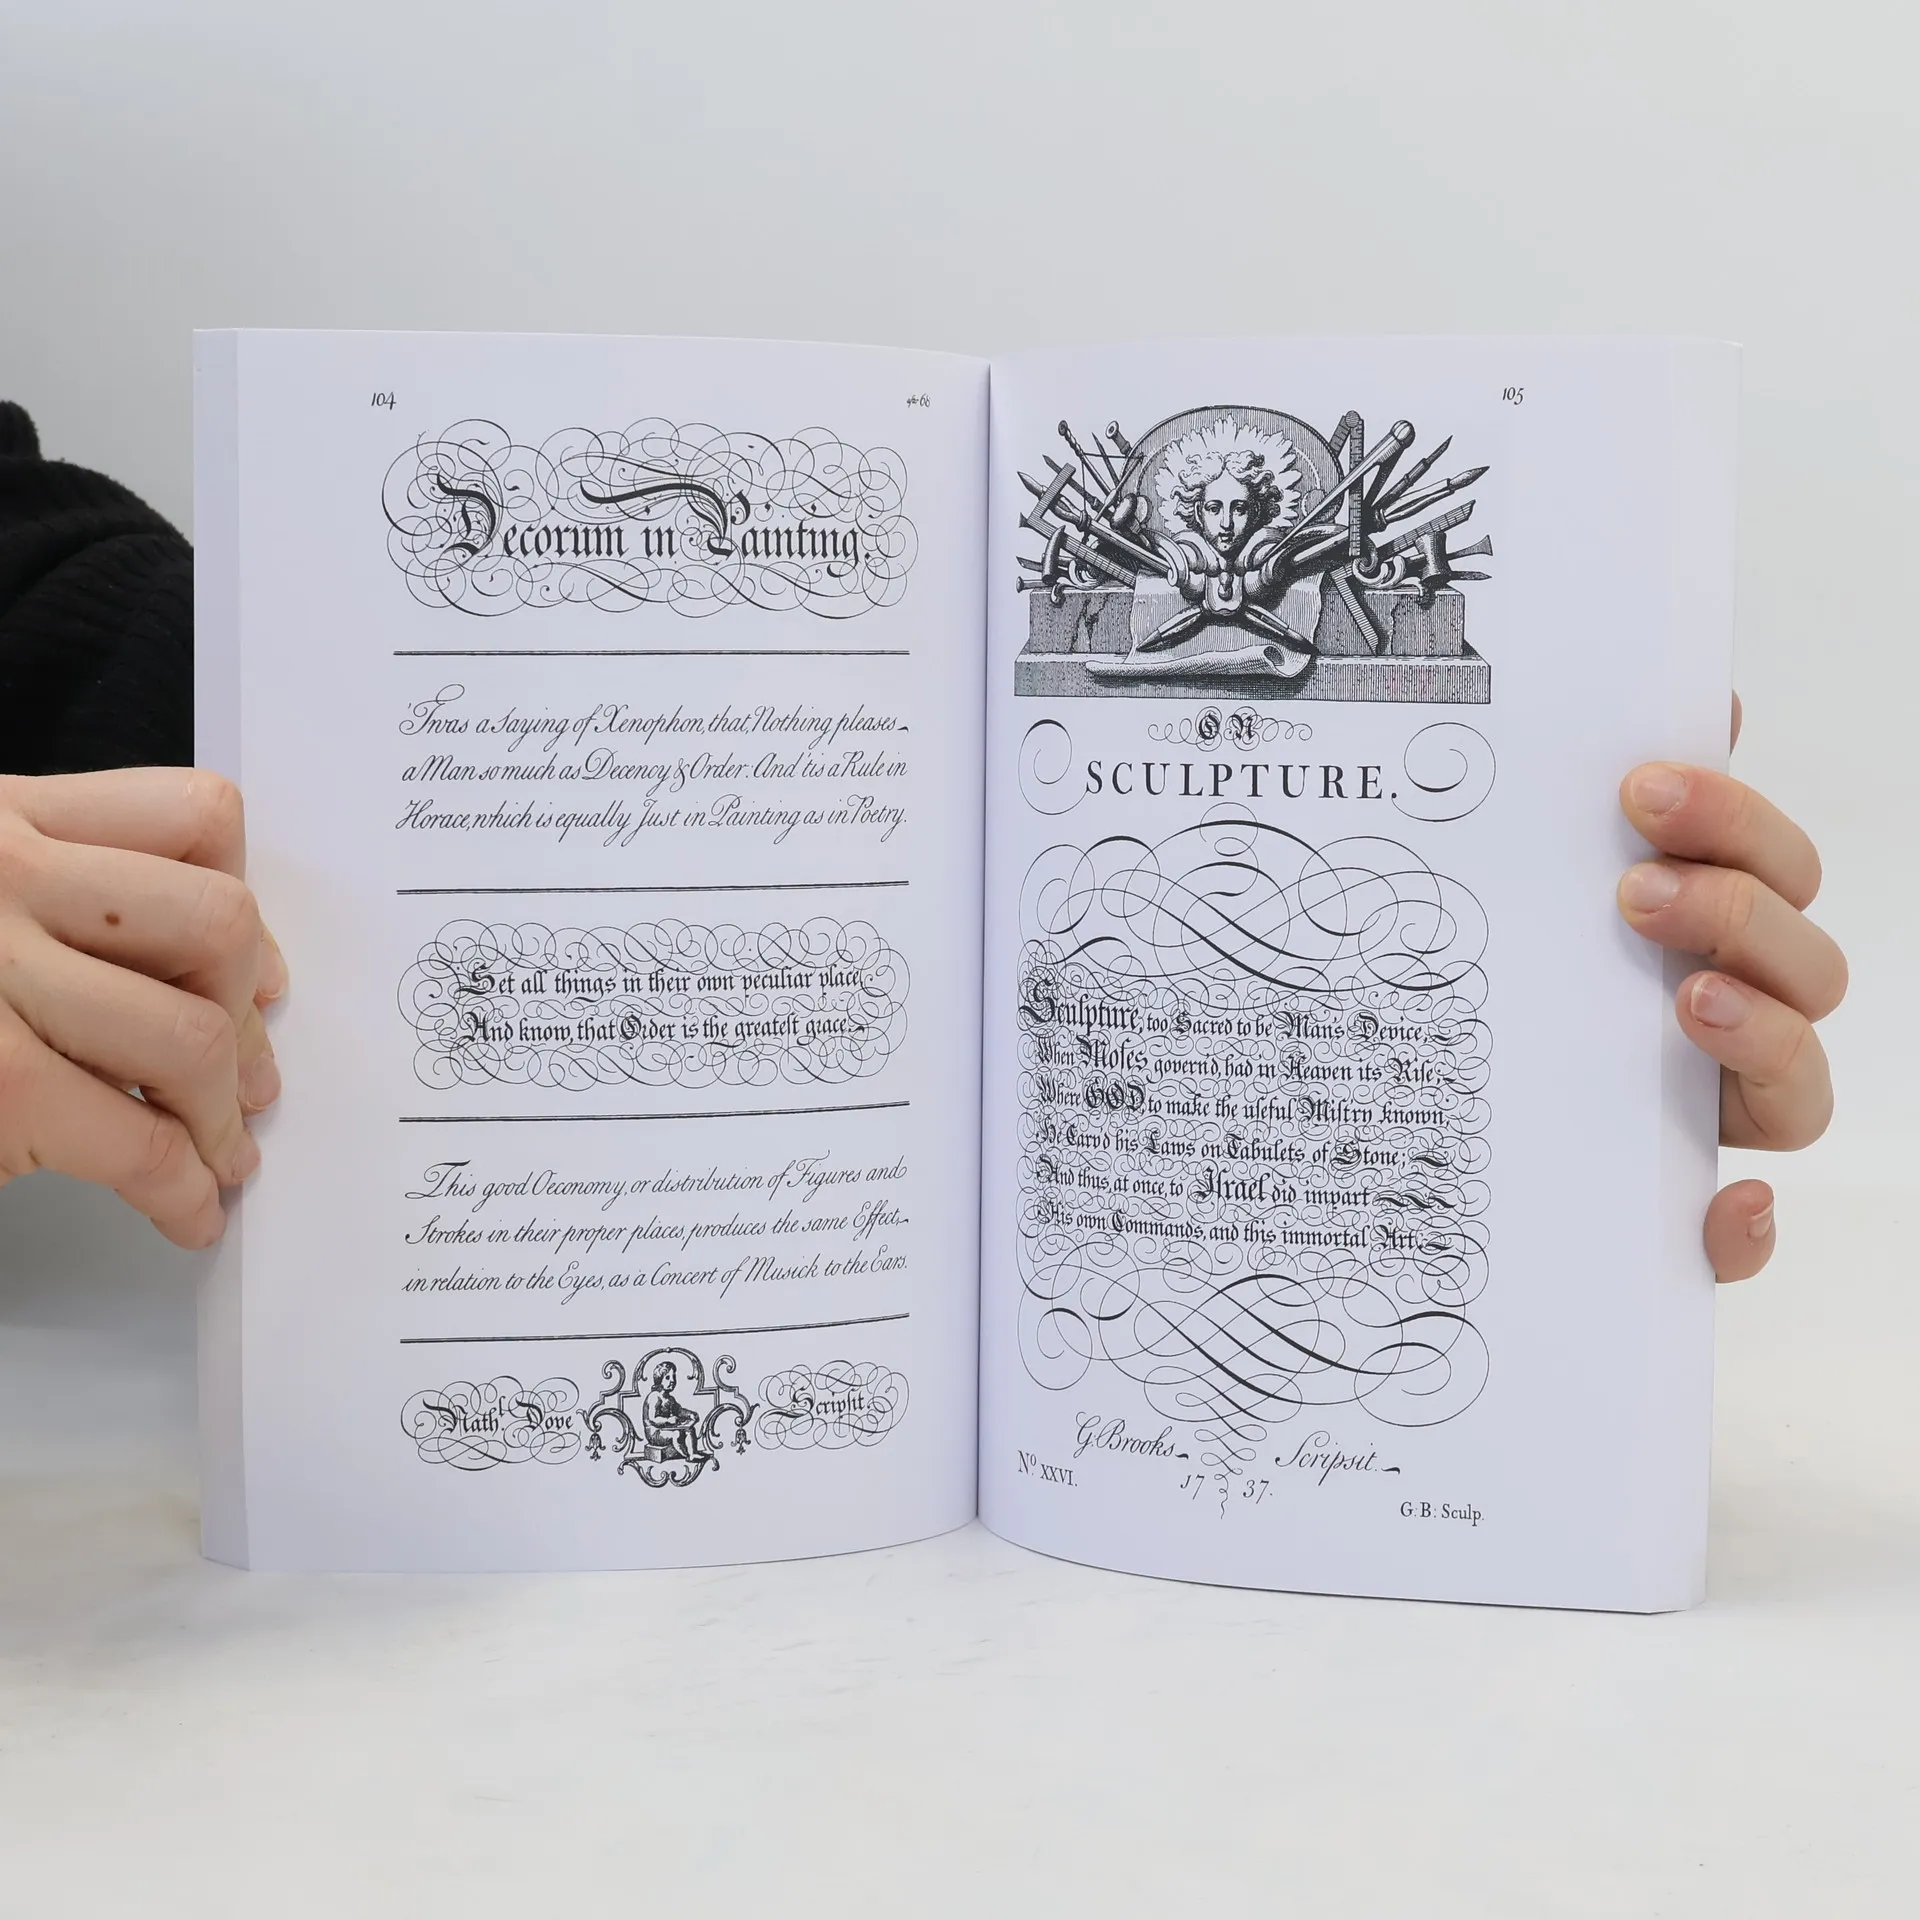 104
Decorum in Painting.
'Twas a Saying of Xenophon, that, Nothing pleases
a Man so much as Decency & Order: And 'tis a Rule in
Horace, which is equally Just in Painting as in Poetry.
Set all things in their own peculiar place,
And know, that Order is the greatest grace.
This good Oeconomy, or distribution of Figures and
Strokes in their proper places, produces the same Effect,
in relation to the Eyes, as a Concert of Musick to the Ears.
Nath.l Dove Scripsit.
105
ON
SCULPTURE.
Sculpture, too Sacred to be Man's Device,
When Moses govern'd, had in Heaven its Rise;
Where GOD, to make the useful Mistry known,
He Carv'd his Laws on Tabulets of Stone;
And thus, at once, to Israel did impart
His own Commands, and this immortal Art.
G. Brooks Scripsit.
No. XXVI. 1737.
G: B: Sculp.